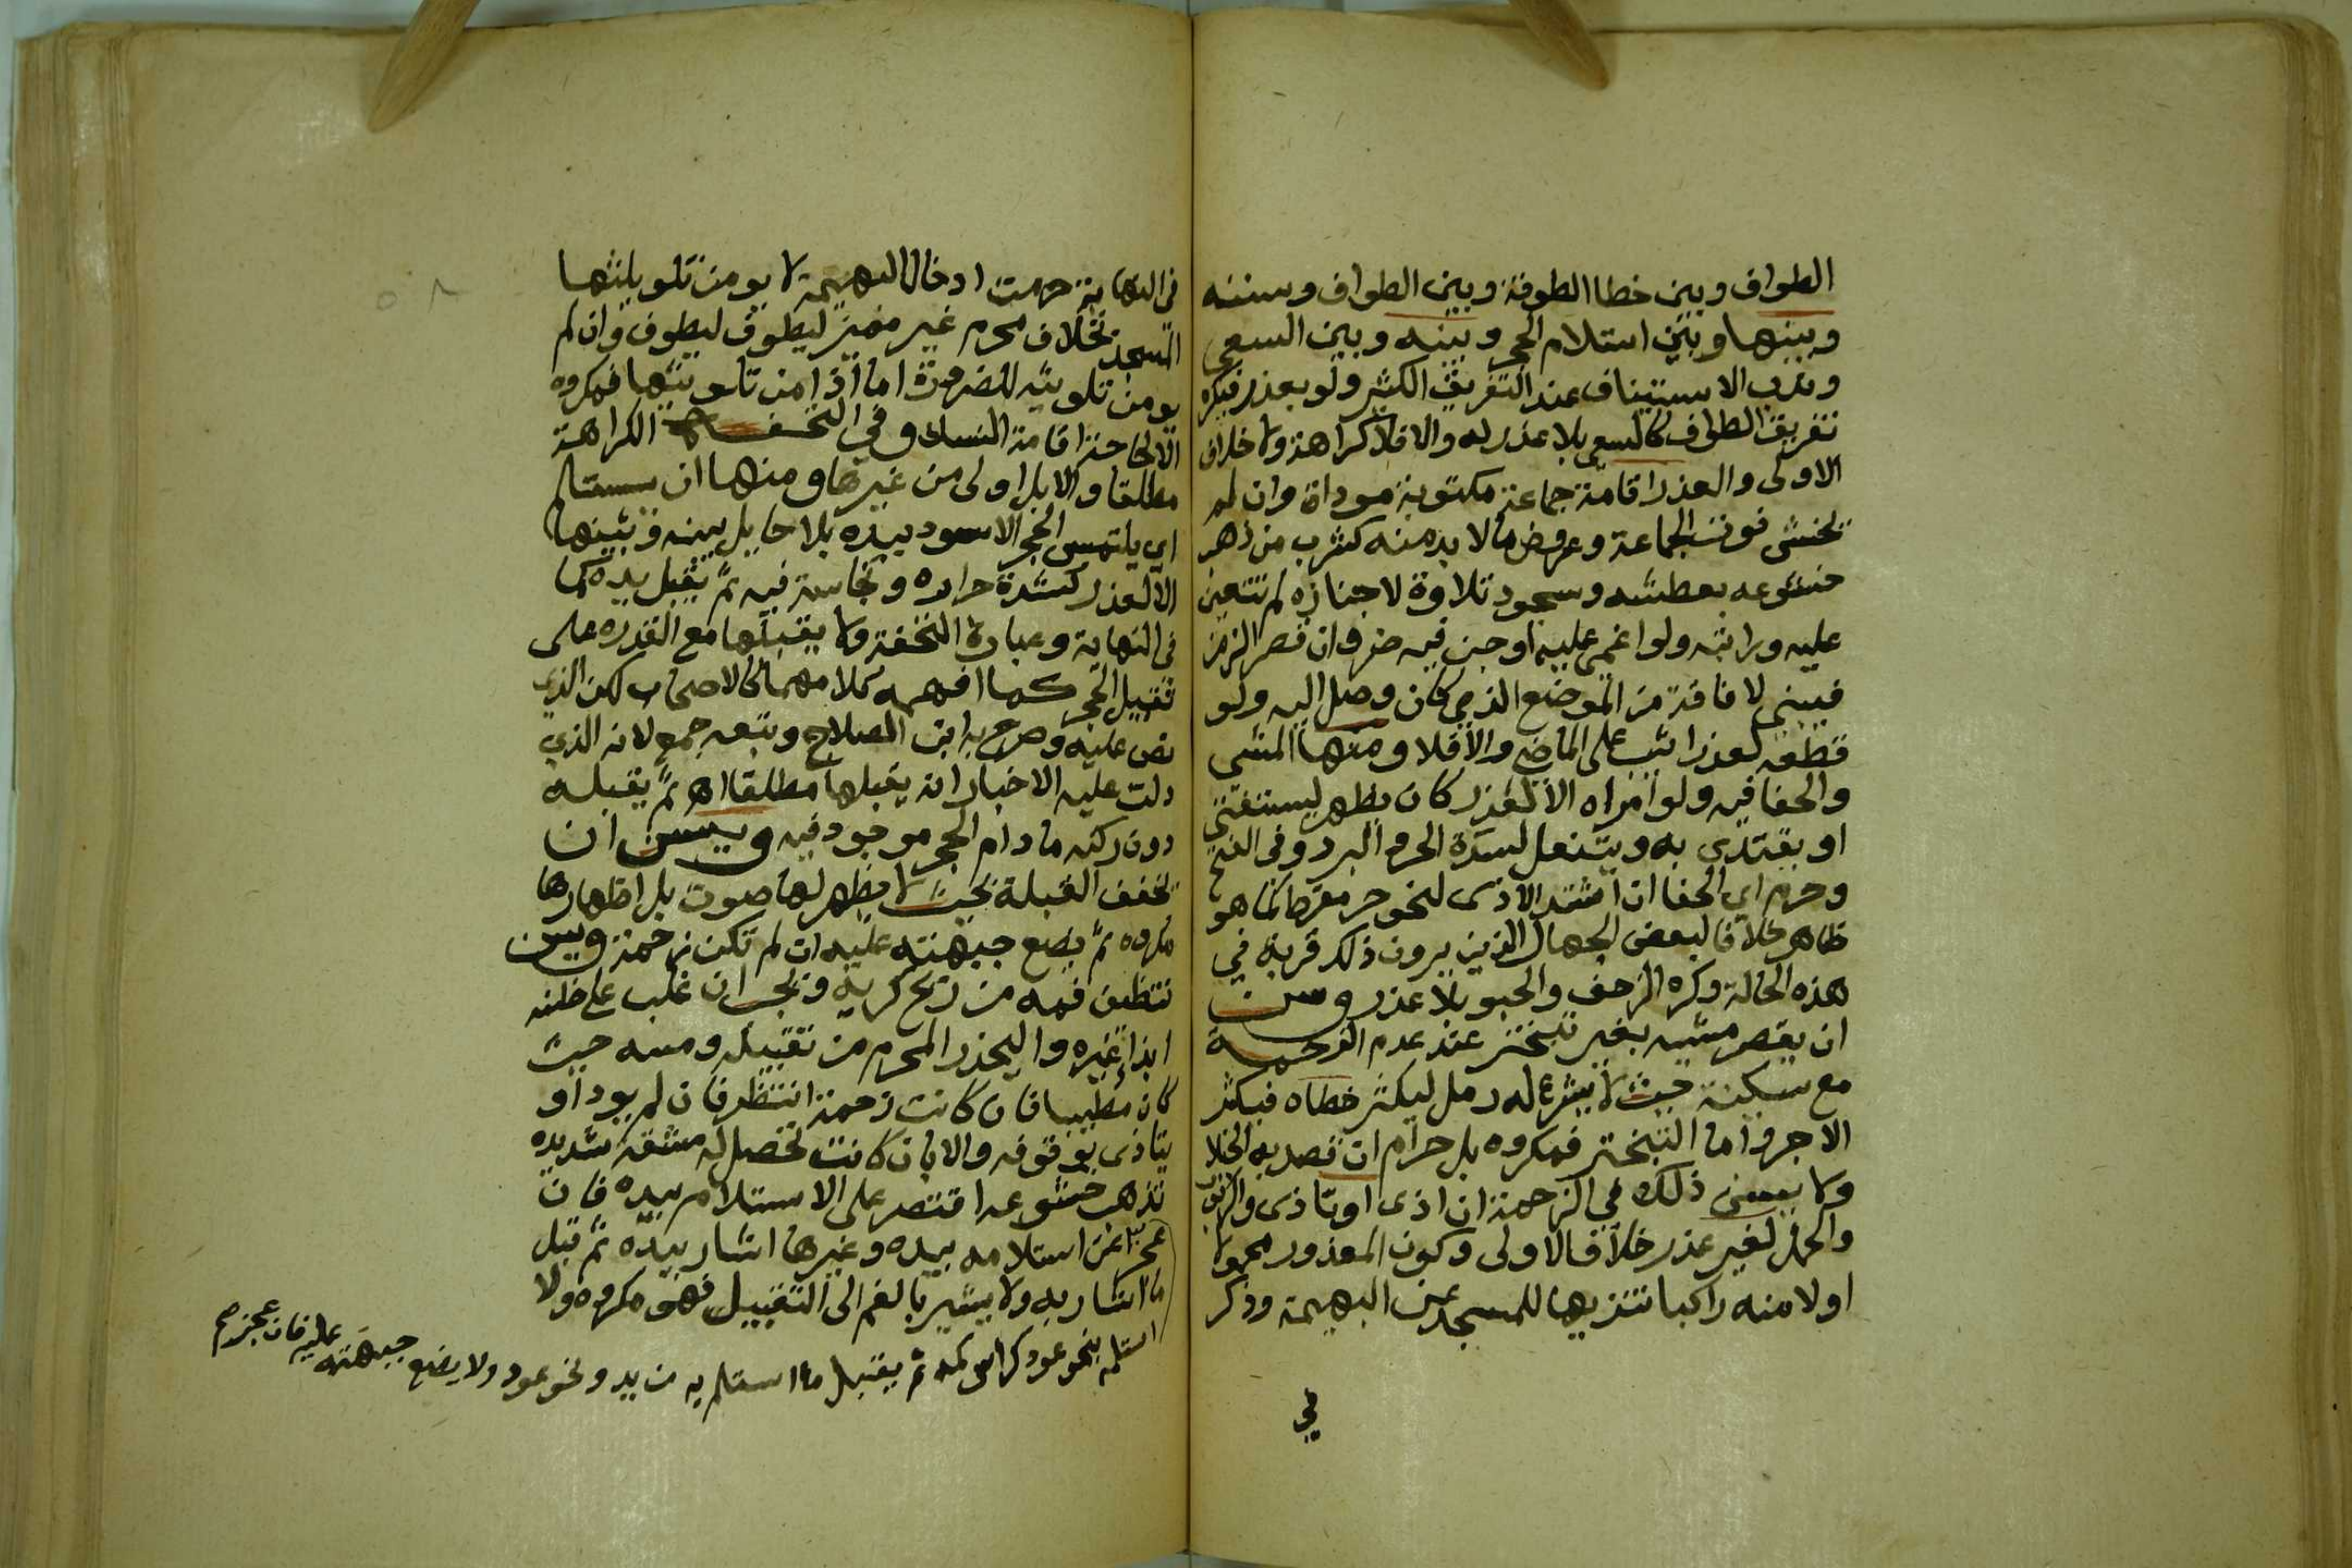 الطواف وبين خطا الطوفة وبين الطواف وسننه
وبينها وبين استلام الحجر وبينه وبين السعى
وندب الاستيناف عند التفريق الكثير ولو بعذر فيكره
تفريق الطواف كالسعي بلا عذر له والا فلا كراهة ولا خلاف
الاولى والعذر اقامة جماعة مكتوبة موداة وان لم
تخش فوت الجماعة وعروض ما لا بد منه كشرب من ذهب
خشوعه بعطشه وسجود تلاوة لا جنازه لم تتعين
عليه وراتبه ولو اغمى عليه او جن فيه ضر وان قصر الزمن
فيبنى لا فاقة من الموضع الذي كان وصل اليه ولو
قطعه لعذر اثيب على الماضي والا فلا ومنها المشي
والحفا فيه ولو امراه الا لعذر كان يظهر ليستفتي
او يقتدي به ويتنعل لشدة الحر والبرد وفى الفتح
وحرم اي الحفا ان اشتد الاذى لنحو حر مفرط كما هو
ظاهر خلافا لبعض الجهال الذين يرون ذلك قربة في
هذه الحالة وكره الزحف والحبو بلا عذر وسن
ان يقصر مشيه بغير تبختر عند عدم الزحمة
مع سكينة حيث لا يشرع له رمل ليكثر خطاه فيكثر
الاجر واما التبختر فمكروه بل حرام ان قصد به الخيلا
ولا يسن ذلك في الزحمة ان اذى او تاذى والركوب
والحمل لغير عذر خلاف الاولى وكون المعذور محمولا
اولا منه راكبا تنزيها للمسجد عن البهيمة وذكر
في
فى النهاية حرمت ادخال البهيمة لا يومن تلويثها
المسجد بخلاف محرم غير مميز ليطوف ليطوف وان لم
يومن تلويثه للضرورة اما اذا امن تلويثها فمكروه
الا لحاجة اقامة النسك وفي التحفة الكراهة
مطلقا والابل اولى من غيرها ومنها ان يستلم
اي يلتمس الحجر الاسود بيده بلا حايل بينه وبينها
الا لعذر كشدة حراره ونجاسة فيه ثم يقبل يده كما
فى النهاية وعبارة التحفة ولا يقبلها مع القدره على
تقبيل الحجر كما افهمه كلامهما كالاصحاب لكن الذي
نص عليه وصرح به ابن الصلاح وتبعه جمع لانه الذي
دلت عليه الاخبار انه يقبلها مطلقا اهـ ثم يقبله
دون ركنه ما دام الحجر موجود فيه ويسن ان
تخفف القبلة بحيث لا يظهر لها صوت بل اظهارها
مكروه ثم يضع جبهته عليه ان لم تكن زحمة ويسن
تنظيف فمه من ريح كريه ويجب ان غلب على ظنه
ايذا غيره واليحذر المحرم من تقبيله ومسه حيث
كان مطيبا فان كانت زحمة انتظر فان لم يود او
يتاذى بوقوفه والا بان كانت تحصل له مشقة شديده
تذهب خشوعه اقتصر على الاستلام بيده فان
عجز عن استلامه بيده وغيرها اشار بيده ثم قبل
ما اشار به ولا يشير بالفم الى التقبيل فهو مكروه ولا
استلمه بنحو عود كراس كمه ثم يقبل ما استلم به من يد ونحو عود ولا يضع جبهته عليه فان عجز صح